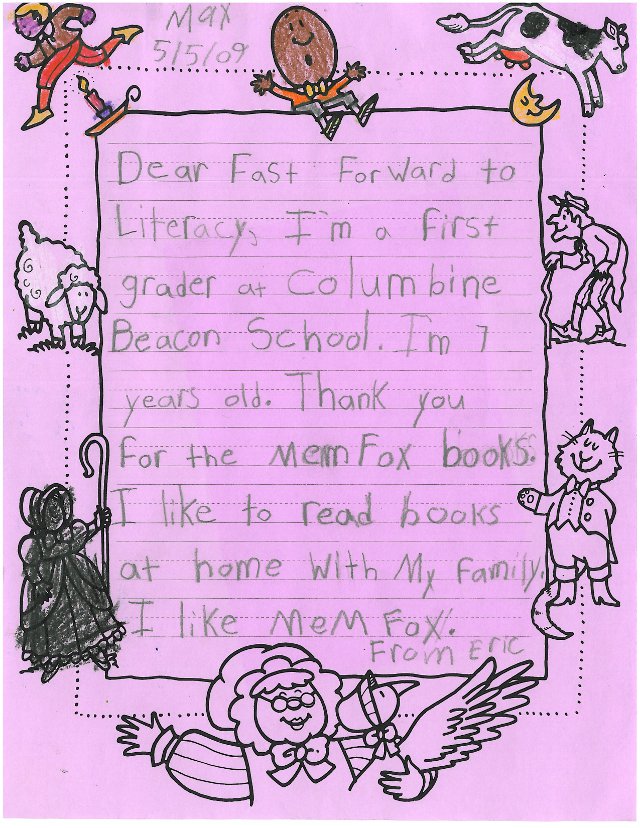 Max
5/5/09
Dear Fast Forward to
Literacy, I'm a first
grader at Columbine
Beacon School. I'm 7
years old. Thank you
for the Mem Fox books.
I like to read books
at home With My Family.
I like MeM Fox.
From Eric